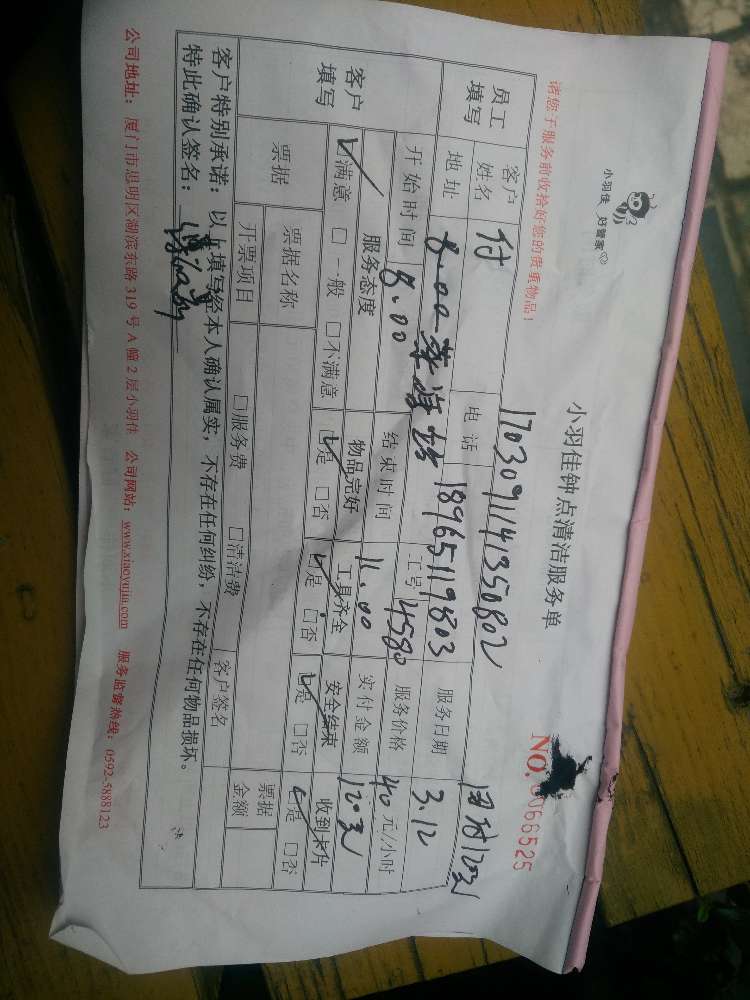 小羽佳 好管家
小羽佳钟点清洁服务单
请您于服务前收拾好您的贵重物品!
NO.0066525
1703091141350802
员工填写
客户姓名 付 电话 18965119803 服务日期 3.12
地址 8.00 工号 4580 服务价格 40元/小时
开始时间 8.00 结束时间 11.00 实付金额 120元
客户填写
服务态度 物品完好 工具齐全 安全结束 收到卡片
☑满意 □一般 □不满意 ☑是 □否 ☑是 □否 ☑是 □否 ☑是 □否
票据 票据名称 客户签名 票据金额
开票项目 □服务费 □清洁费
客户特别承诺:以上填写经本人确认属实,不存在任何纠纷,不存在任何物品损坏。
特此确认签名:
公司地址:厦门市思明区湖滨东路319号A幢2层小羽佳 公司网站:www.xiaoyujia.com 服务监督热线:0592-5888123